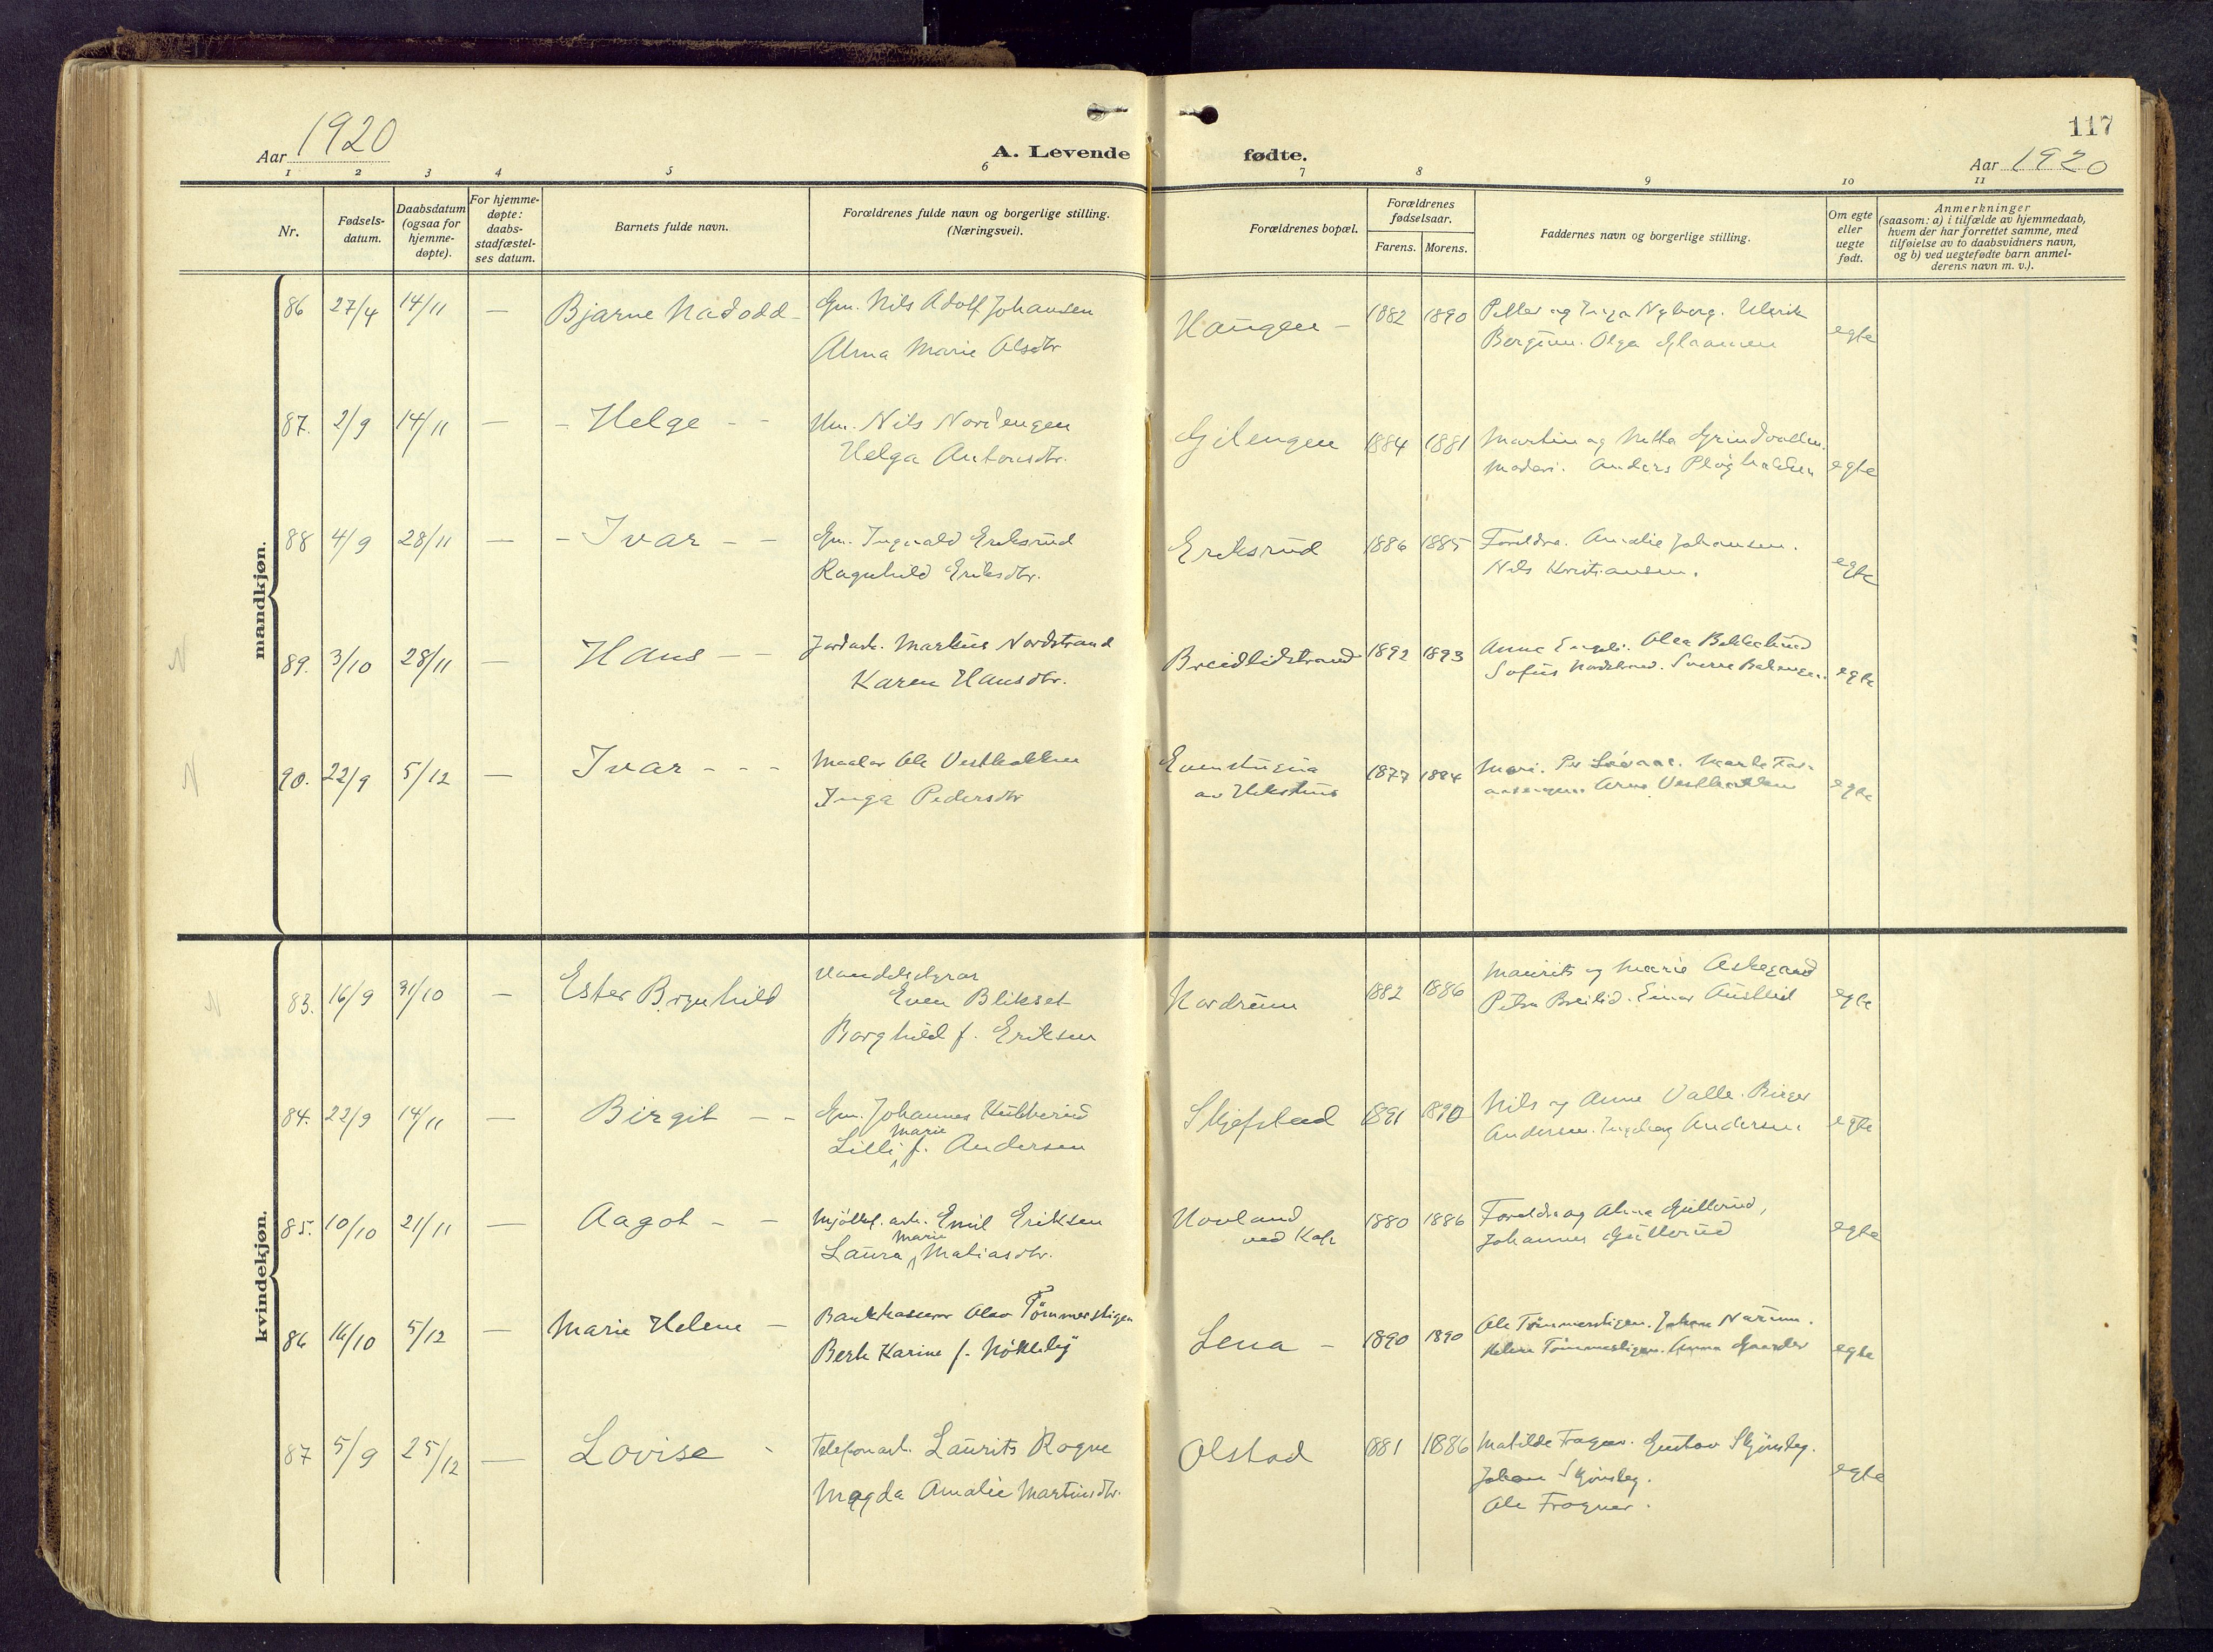 Aar 1920
A. Levende fødte.
117
Aar 1920
1 2 3 4 5 6 7 8 9 10 11
Nr.
Fødsels-
datum.
Daabsdatum
(ogsaa for
hjemme-
døpte).
For hjemme-
døpte:
daabs-
stadfæstel-
ses datum.
Barnets fulde navn.
Forældrenes fulde navn og borgerlige stilling.
(Næringsvei).
Forældrenes bopæl.
Forældrenes
fødselsaar.
Farens. Morens.
Faddernes navn og borgerlige stilling.
Om egte
eller
uegte
født.
Anmerkninger
(saasom: a) i tilfælde av hjemmedaab,
hvem der har forrettet samme, med
tilføielse av to daabsvidners navn,
og b) ved uegtefødte barn anmel-
derens navn m. v.).
mandkjøn.
86 27/4 14/11 — Bjarne Nadodd - Gm. Nils Adolf Johansen Haugen - 1882 1890 Petter og Inga Nyborg. Ulerik egte
Alma Marie Olsdtr Bergum. Olga Glaamen
87. 2/9 14/11 — - Helge - - Nils Nordengen Gilengen 1884 1881 Martin og Netta Grindvollen. egte
Helga Antonsdtr. Anders
88 4/9 28/11 — - Ivar - - Gm. Ingvald Eriksrud Eriksrud 1886 1885 Foreldre. Amalie Johansen. egte
Ragnhild Eriksdtr. Nils Kristiansen.
89. 3/10 28/11 — Hans - - Jordarb. Markus Nordstrand Breidlidstrand 1892 1893 Anna Engeli. Olea Bakkelund egte
Karen Hansdtr. Sofus Nordstrand. Sverre
90. 22/9 5/12 — Ivar - - - Maaler Ole Vestbakken Evenstugua 1877 1884 egte
Inga Pedersdtr av Arne Vestbakken
kvindekjøn.
83. 16/9 31/10 — Ester Brynhild Handelsbestyrer Nordrum 1882 1886 Maurits og Marie Askegaard egte
Even Blikset Petra Breilid. Einar Austlid
Borghild f. Eriksen
84. 22/9 14/11 — Birgit - - Gm. Johannes Kubberud Skjefstad 1891 1890 Nils og Anne Valle. Birger egte
Lilli Marie f. Andersen Andersen. Ingeborg Andersen
85. 10/10 21/11 — Aagot - - Mjölkef. arb. Emil Eriksen Hovland 1880 1886 Foreldre og Alma Gullerud, egte
Laura Marie Matiasdtr. ved Kap Johannes Gullerud
86 16/10 5/12 — Marie Helene - Bankkasserer Olav Tömmerstigen Lena - 1890 1890 Ole Tömmerstigen. Johan Narum. egte
Berte Karine f. Nökleby Helene Tömmerstigen. Anna Gaarder
87 5/9 25/12 — Lovise - Telefonarb. Laurits Rogne Olstad 1881 1886 Matilde Frogner. Gustav Skjönsbeg. egte
Magda Amalie Martinsdtr. Johan Skjönsbeg.
Ole Frogner.